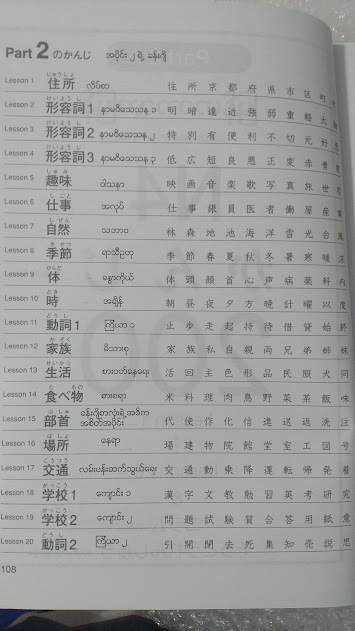 Part 2 のかんじ အပိုင်း ၂ ရဲ့ ခန်းဂျိ
じゅうしょ
Lesson 1 住所 လိပ်စာ 住 所 京 都 府 県 市 区 町
けいようし
Lesson 2 形容詞1 နာမဝိသေသန ၁ 明 暗 遠 近 強 弱 重 軽 太
けいようし
Lesson 3 形容詞2 နာမဝိသေသန ၂ 特 別 有 便 利 不 切 元 好
けいようし
Lesson 4 形容詞3 နာမဝိသေသန ၃ 低 広 短 良 悪 正 変 赤 青
しゅみ
Lesson 5 趣味 ဝါသနာ 映 画 音 楽 歌 写 真 旅 世
しごと
Lesson 6 仕事 အလုပ် 仕 事 銀 員 医 者 働 屋 産 業
しぜん
Lesson 7 自然 သဘာဝ 林 森 地 池 海 洋 雪 光 台 風
きせつ
Lesson 8 季節 ရာသီဥတု 季 節 春 夏 秋 冬 暑 寒 暖
からだ
Lesson 9 体 ခန္ဓာကိုယ် 体 頭 顔 首 心 声 病 薬 科 内
とき
Lesson 10 時 အချိန် 朝 昼 夜 夕 方 晩 計 曜 以 度
どうし
Lesson 11 動詞1 ကြိယာ ၁ 止 歩 走 起 持 待 借 貸 始 終
かぞく
Lesson 12 家族 မိသားစု 家 族 私 自 親 両 兄 弟 姉 妹
せいかつ
Lesson 13 生活 စားဝတ်နေရေး 活 回 主 色 形 品 民 服 犬 同
たべもの
Lesson 14 食べ物 စားစရာ 米 料 理 肉 鳥 野 菜 茶 飯 味
ぶしゅ
Lesson 15 部首 ခန်းဂျိစာလုံးရဲ့အဓိက အစိတ်အပိုင်း 代 使 作 化 信 進 送 返 洗 注
ばしょ
Lesson 16 場所 နေရာ 場 建 物 院 館 堂 室 工 図 号
こうつう
Lesson 17 交通 လမ်းပန်းဆက်သွယ်ရေး 交 通 動 乗 降 運 転 帰 発 着
がっこう
Lesson 18 学校1 ကျောင်း ၁ 漢 字 文 教 勉 習 英 考 研 究
がっこう
Lesson 19 学校2 ကျောင်း ၂ 問 題 試 験 質 合 答 用 紙 意
どうし
Lesson 20 動詞2 ကြိယာ ၂ 引 開 閉 去 死 集 知 売 説 思
108